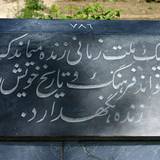 ۷۸۶
یک ملت زمانی زنده میماند که
بتواند فرهنگ و تاریخ خویش را
زنده نگهدارد